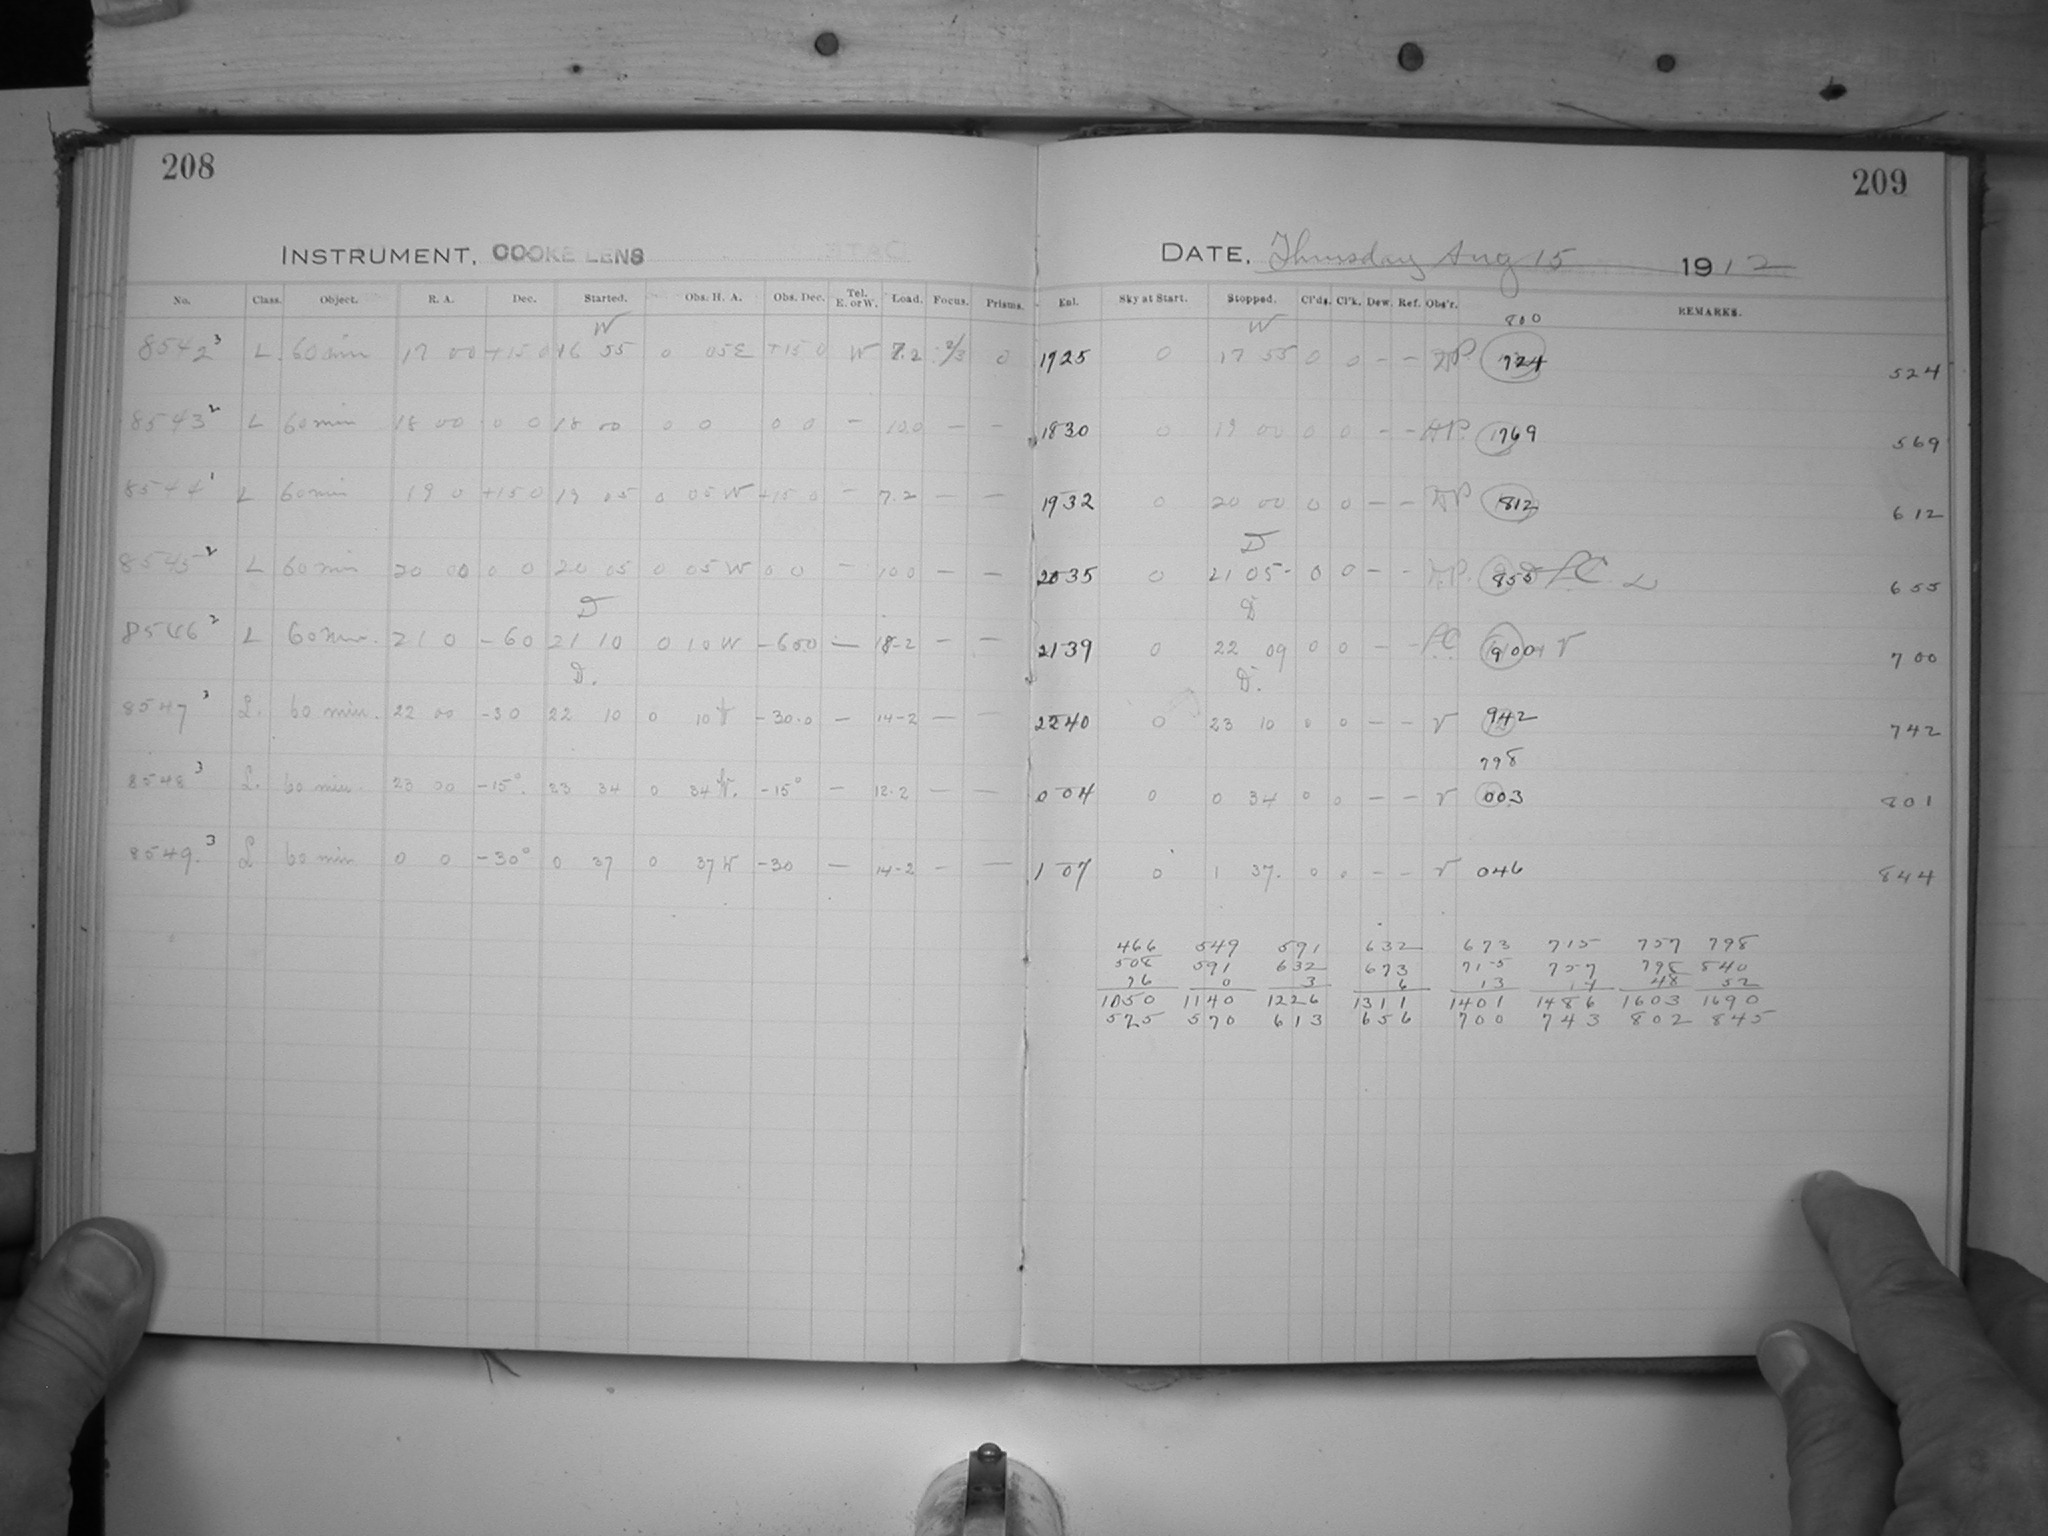 208
209
INSTRUMENT, COOKE LENS
DATE, Thursday Aug 15 1912
No. Class. Object. R. A. Dec. Started. Obs. H. A. Obs. Dec. Tel. E. or W. Load. Focus. Prisms.
Enl. Sky at Start. Stopped. Cl'ds. Cl'k. Dew. Ref. Obs'r. REMARKS.
W W 800
8542 3 L 60 min 17 00 +15 0 16 55 0 05E +15 0 W 7.2 0 1725 0 17 55 0 0 - - 524
8543 2 L 60 min 18 00 0 0 18 00 0 0 0 0 - 10.0 - - 1830 0 19 00 0 0 - - 1769 569
8544 1 L 60 min 19 0 +15 0 19 05 0 05 W +15 0 - 7.2 - - 1932 0 20 00 0 0 - - 1812 612
D
8545 2 L 60 min 20 00 0 0 20 05 0 05 W 0 0 - 10 0 - - 2035 0 21 05 0 0 - - 655
D D
8546 2 L 60 min. 21 0 -60 21 10 0 10 W -60.0 - 18-2 - - 2139 0 22 09 0 0 - - 700
D. D.
8547 3 L. 60 min. 22 00 -30 22 10 0 10 -30.0 - 14-2 - - 2240 0 23 10 0 0 - - 942 742
798
8548 3 L. 60 min. 23 00 -15°. 23 34 0 34 W. -15° - 12.2 - - 0 04 0 0 34 0 0 - - 003 801
8549. 3 L 60 min 0 0 -30° 0 37 0 37 W -30 - 14-2 - - 1 07 0 1 37. 0 0 - - 046 844
466 549 591 632 673 715 757 798
508 591 632 673 715 757 798 840
76 0 3 6 13 14 48 52
1050 1140 1226 1311 1401 1486 1603 1690
525 570 613 656 700 743 802 845